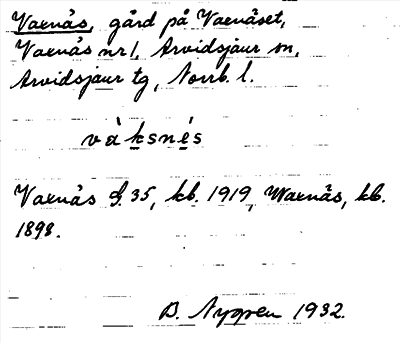 Vaxnäs, gård på Vaxnäset,
Vaxnäs nr 1, Arvidsjaur sn,
Arvidsjaur tg, Norrb. l.
vàksnés
Vaxnäs J. 35, kb. 1919, Waxnäs, kb.
1898.
B. Nygren 1932.